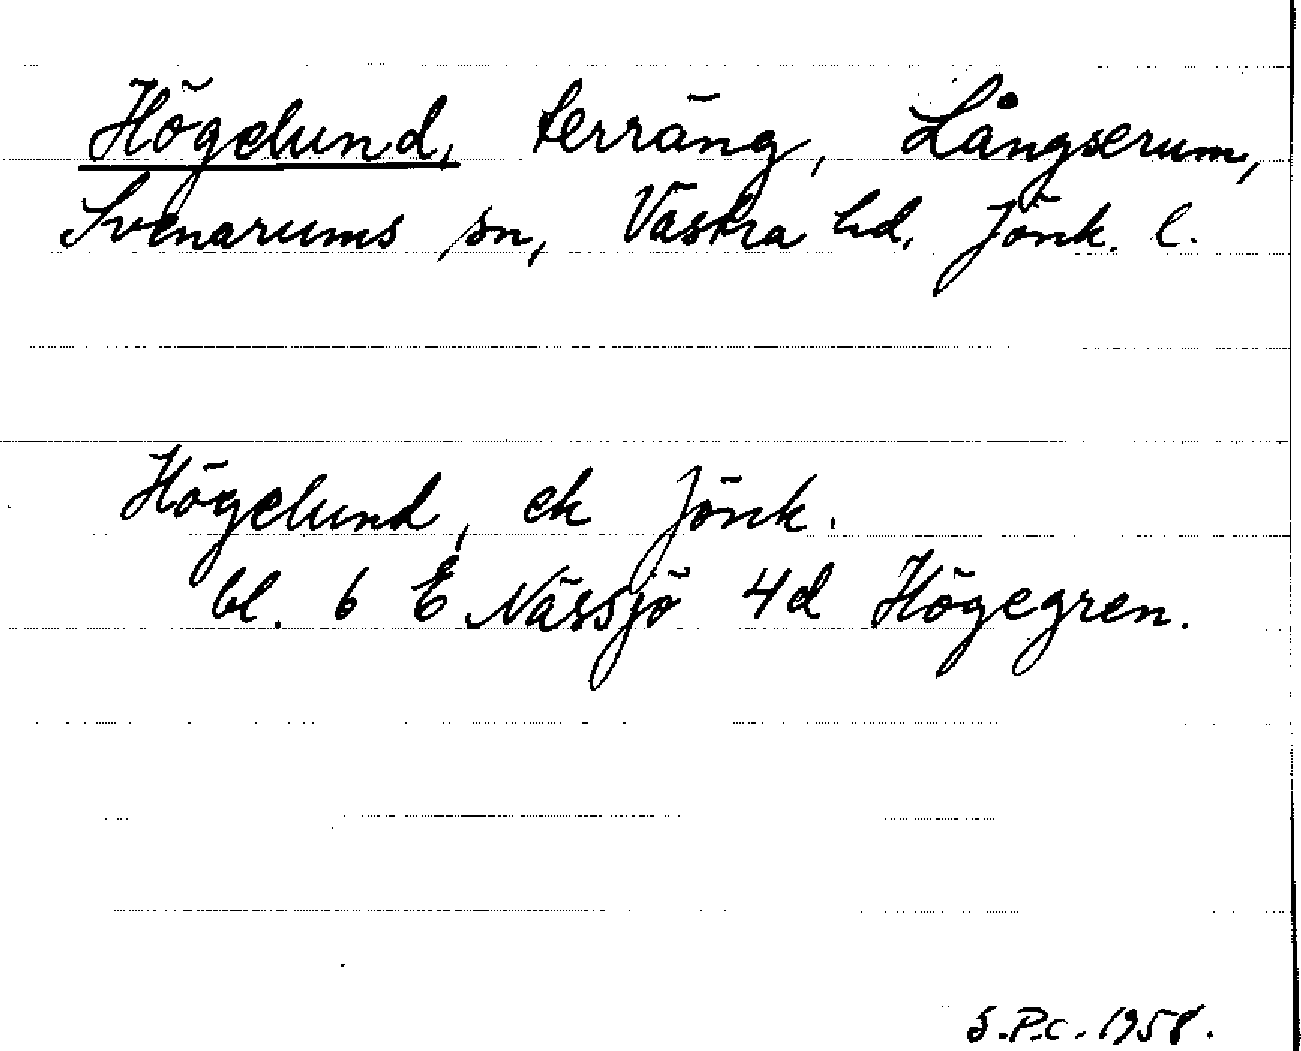 Högelund, terräng, Långserum,
Svenarums sn, Västra hd, Jönk. l.
Högelund, ek Jönk.
bl. 6 E Nässjö 4d Högegren.
S.P.c. 1958.